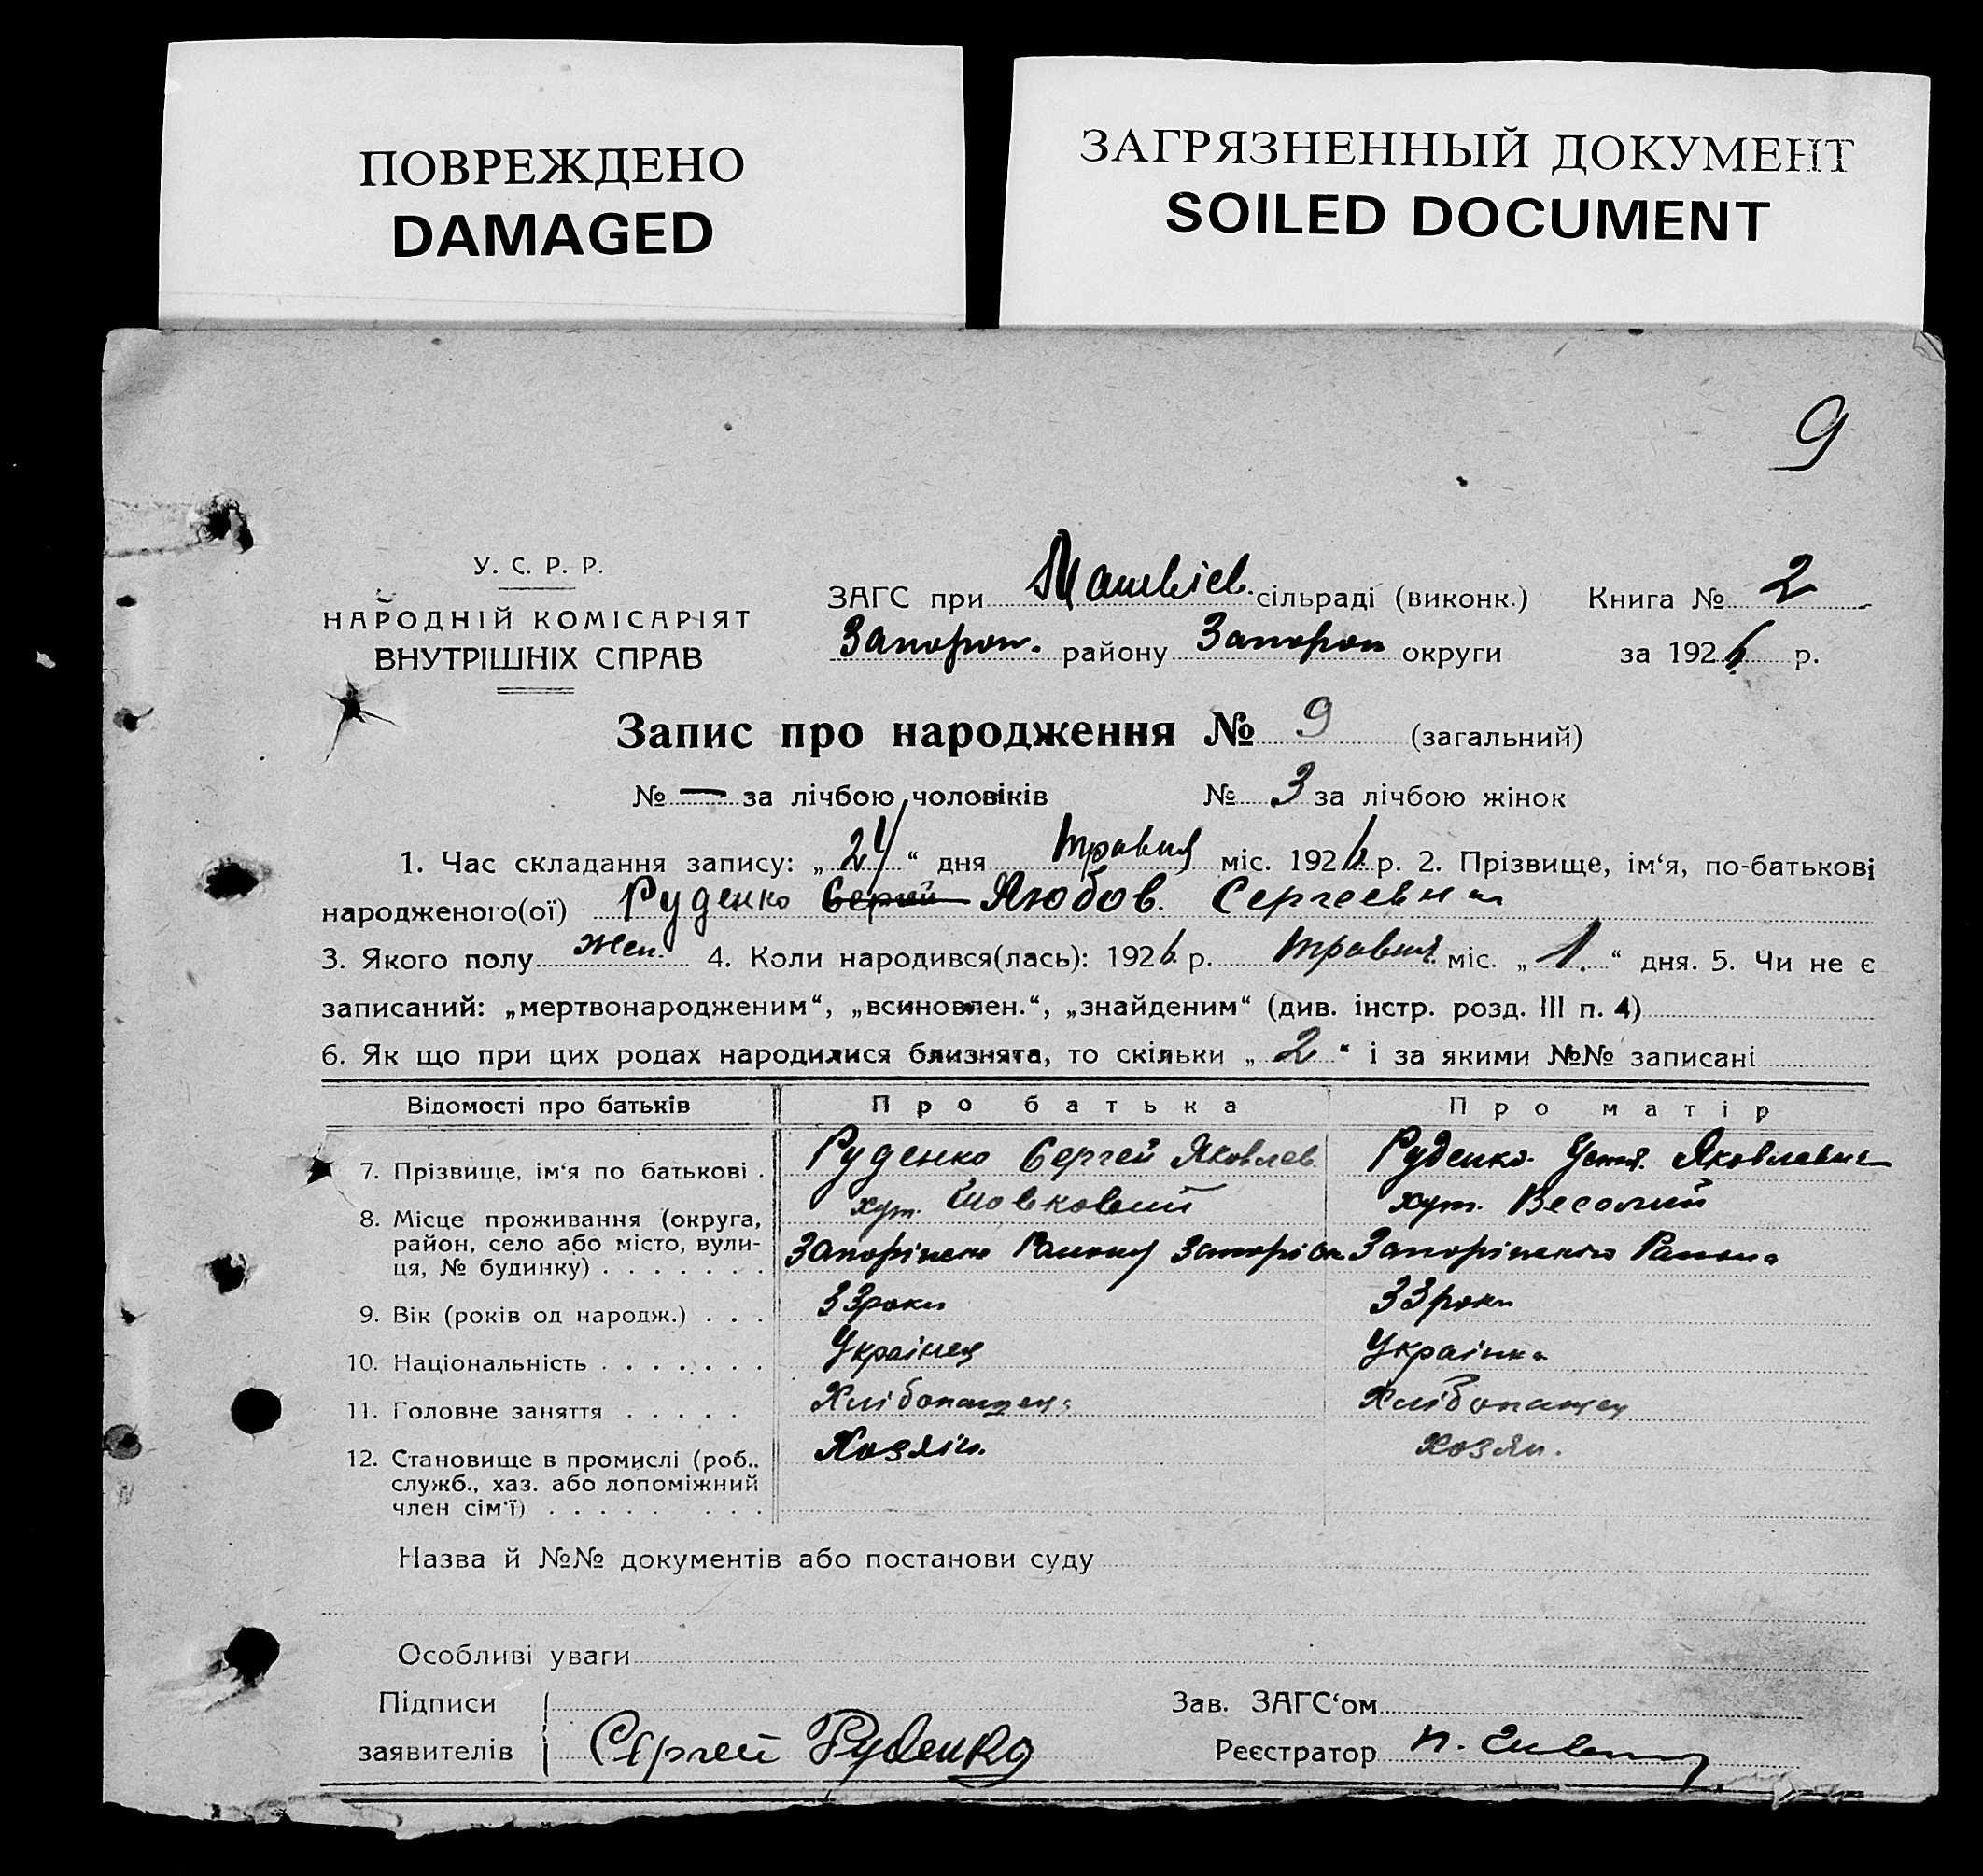 ПОВРЕЖДЕНО
DAMAGED
ЗАГРЯЗНЕННЫЙ ДОКУМЕНТ
SOILED DOCUMENT
9
У. С. Р. Р.
НАРОДНІЙ КОМІСАРІЯТ
ВНУТРІШНІХ СПРАВ
ЗАГС при сільраді (виконк.) Книга № 2
Запорож. району Запорож округи за 1926 р.
Запис про народження № 9 (загальний)
№ — за лічбою чоловіків № 3 за лічбою жінок
1. Час складання запису: „24“ дня травня міс. 1926 р. 2. Прізвище, ім‘я, по-батькові
народженого(ої) Руденко Сергей Любов. Сергеевна
3. Якого полу жен. 4. Коли народився(лась): 1926 р. травня міс. „1.“ дня. 5. Чи не є
записаний: „мертвонародженим“, „всиновлен.“, „знайденим“ (див. інстр. розд. III п. 4)
6. Як що при цих родах народилися близнята, то скільки „2“ і за якими №№ записані
Відомості про батьків Про батька Про матір
7. Прізвище, ім‘я по батькові . Руденко Сергей Яковлев Руденко Яковлевна
8. Місце проживання (округа, хут. хут. Веселий
район, село або місто, вули-
ця, № будинку) . . . . . . . Району Запоріжського Района
9. Вік (років од народж.) . . . 33 роки 33 роки
10. Національність . . . . . . . Українец Українка
11. Головне заняття . . . . . Хлібопашец Хлібопашец
12. Становище в промислі (роб., Хозяін. Хозяи.
служб., хаз. або допоміжний
член сім‘ї) . . . . . . . .
Назва й №№ документів або постанови суду
Особливі уваги
Підписи Зав. ЗАГС‘ом
заявителів Сергей Руденко Реєстратор